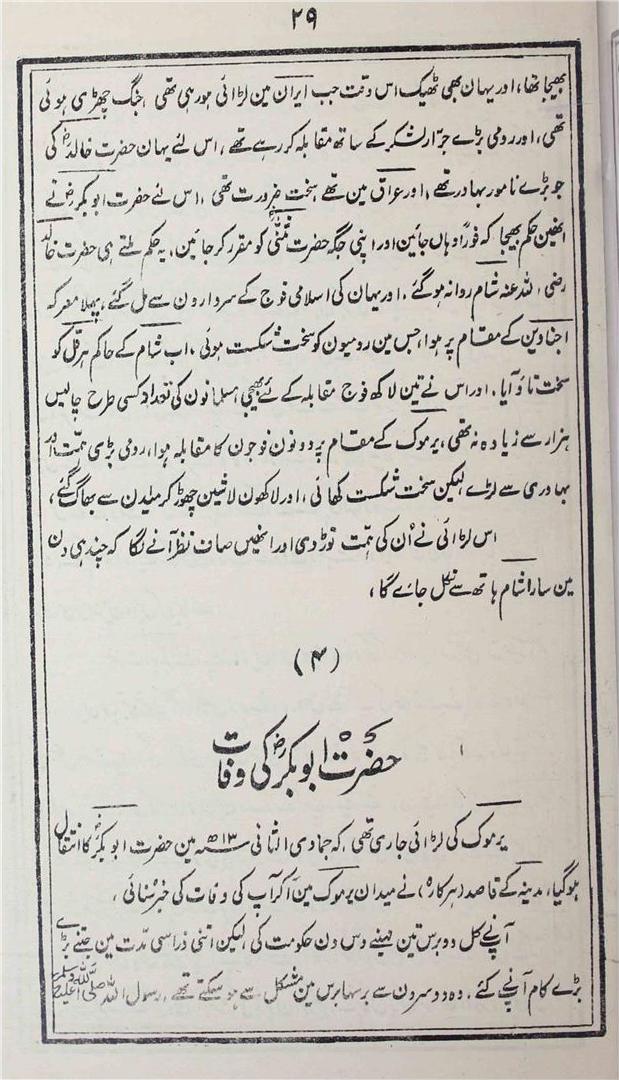 ۲۹
بھیجا تھا، اور یہان بھی ٹھیک اس وقت جب ایران مین لڑائی ہو رہی تھی جنگ چھڑی ہوئی
تھی، اور رومی بڑے جرّار لشکر کے ساتھ مقابلہ کر رہے تھے، اس لئے یہان حضرت خالدؓ کی
جو بڑے نامور بہادر تھے، اور عراق مین تھے سخت ضرورت تھی، اس لئے حضرت ابوبکرؓ نے
انھین حکم بھیجا کہ فوراً وہان جائین اور اپنی جگہ حضرت مثنّٰی کو مقرر کر جائین، یہ حکم ملتے ہی حضرت خالد
رضی اللہ عنہ شام روانہ ہو گئے، اور یہان کی اسلامی فوج کے سردارون سے مل گئے، پہلا معرکہ
اجنادین کے مقام پر ہوا، جس مین رومیون کو سخت شکست ہوئی، اب شام کے حاکم ہرقل کو
سخت تاؤ آیا، اور اس نے تین لاکھ فوج مقابلہ کے لئے بھیجی، مسلمانون کی تعداد کسی طرح چالیس
ہزار سے زیادہ نہ تھی، یرموک کے مقام پر دونون فوجون کا مقابلہ ہوا، رومی بڑی ہمّت اور
بہادری سے لڑے لیکن سخت شکست کھائی، اور لاکھون لاشین چھوڑ کر میدن سے بھاگ گئے،
اس لڑائی نے اُن کی ہمّت توڑ دی اور انھین صاف نظر آنے لگا کہ چند ہی دن
مین سارا شام ہاتھ سے نکل جائے گا،
(۴)
حضرت ابوبکرؓ کی وفات
یرموک کی لڑائی جاری تھی، کہ جمادی الثانی ۱۳ھ مین حضرت ابوبکرؓ کا انتقال
ہو گیا، مدینہ کے قاصد (ہرکارہ) نے میدان یرموک مین آکر آپ کی وفات کی خبر سُنائی،
آپنے کل دو برس تین مہینے دس دن حکومت کی لیکن اتنی ذرا سی مدّت مین جتنے بڑے
بڑے کام آپنے کئے، وہ دوسرون سے برسہا برس مین مشکل سے ہو سکتے تھے، رسول اللہ صلی اللہ علیہ وسلم